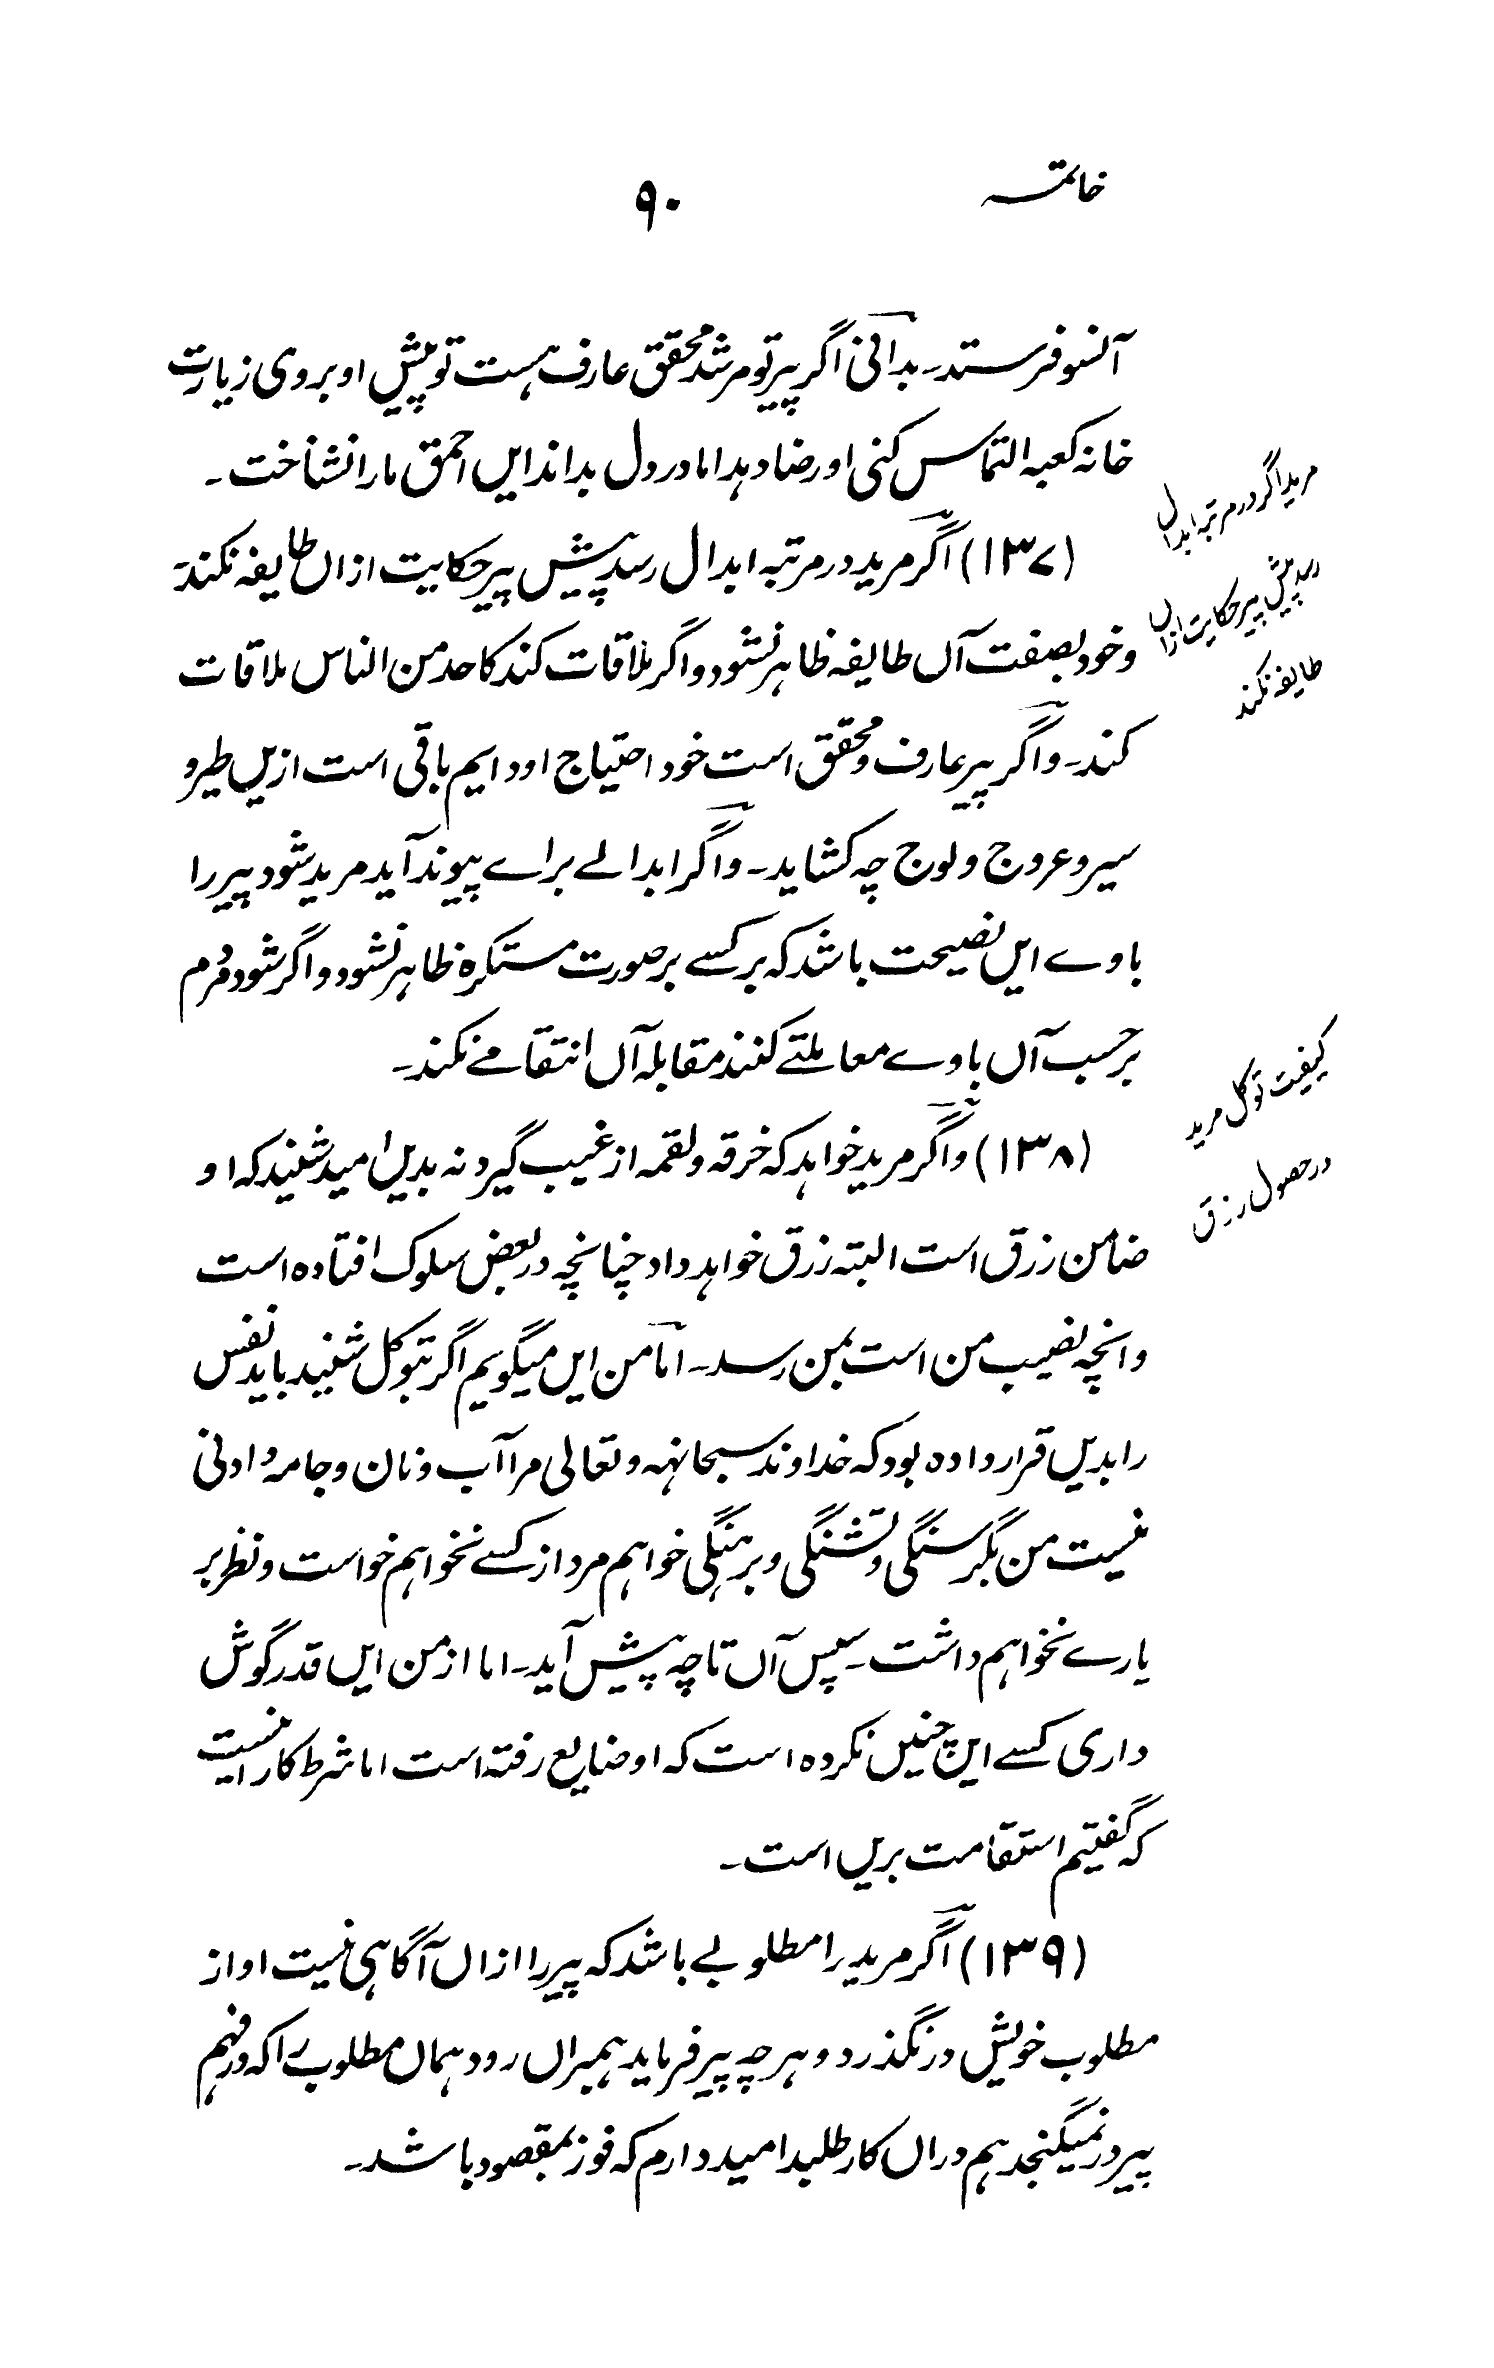 خاتمہ
۹۰
آنسو فرستد۔ بدانی اگر پیر تو مرشد محقق عارف ہست تو پیش او بروی زیارت
خانہ کعبہ التماس کنی او رضا دہد اما در دل بداند ایں احمق مارا نشناخت۔
(۱۳۷) اگر مرید در مرتبہ ابدال رسد پیش پیر حکایت ازاں طایفہ نکند۔
و خود بصفت آں طایفہ ظاہر نشود و اگر ملاقات کند کاحد من الناس ملاقات
کند۔ و اگر پیر عارف و محقق است خود احتیاج او دایم باقی است ازیں طیر و
سیر و عروج و لوج چہ کشاید۔ و اگر ابدالے براے پیوند آید مرید شود پیر را
باوے ایں نصیحت باشد کہ بر کسے بر صورت مستکرہ ظاہر نشود و اگر شود مردم
بر حسب آں باوے معاملتے کنند مقابلہ آں انتقامے نکند۔
(۱۳۸) و اگر مرید خواہد کہ خرقہ و لقمہ از غیب گیرد نہ بدیں امید نشیند کہ او
ضامن رزق است البتہ رزق خواہد داد چنانچہ در بعض سلوک افتادہ است
و انچہ نصیب من است بمن رسد۔ اما من ایں میگویم اگر بتوکل نشیند باید نفس
را بدیں قرار دادہ بود کہ خداوند سبحانہ و تعالی مرا آب و نان و جامہ دادنی
نیست من بگرسنگی و تشنگی و برہنگی خواہم مرد از کسے نخواہم خواست و نظر بر
یارے نخواہم داشت۔ سپس آں تا چہ پیش آید۔ اما از من ایں قدر گوش
داری کسے ایں چنیں نکردہ است کہ او ضایع رفتہ است اما شرط کار اینست
کہ گفتیم استقامت بریں است۔
(۱۳۹) اگر مرید را مطلوبے باشد کہ پیر را ازاں آگاہی نیست او از
مطلوب خویش در نگذرد و ہر چہ پیر فرماید ہمبراں رود ہماں مطلوب را کہ در فہم
پیر در نمیگنجد ہم دراں کار طلبد امید دارم کہ فوز بمقصود باشد۔
مرید اگر در مرتبہ ابدال
رسد پیش پیر حکایت ازاں
طایفہ نکند
کیفیت توکل مرید
در حصول رزق